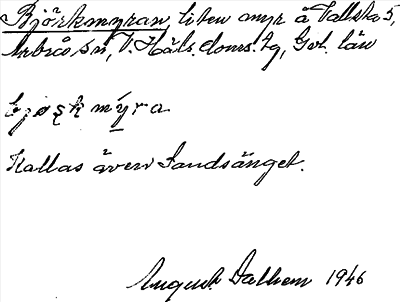 Björkmyran, liten myr å Vallsta 5,
Arbrå sn, V. Häls. doms. tg, Gvl. län
bjøʂkmýra
Kallas även Sandsänget.
August Dalhem 1946